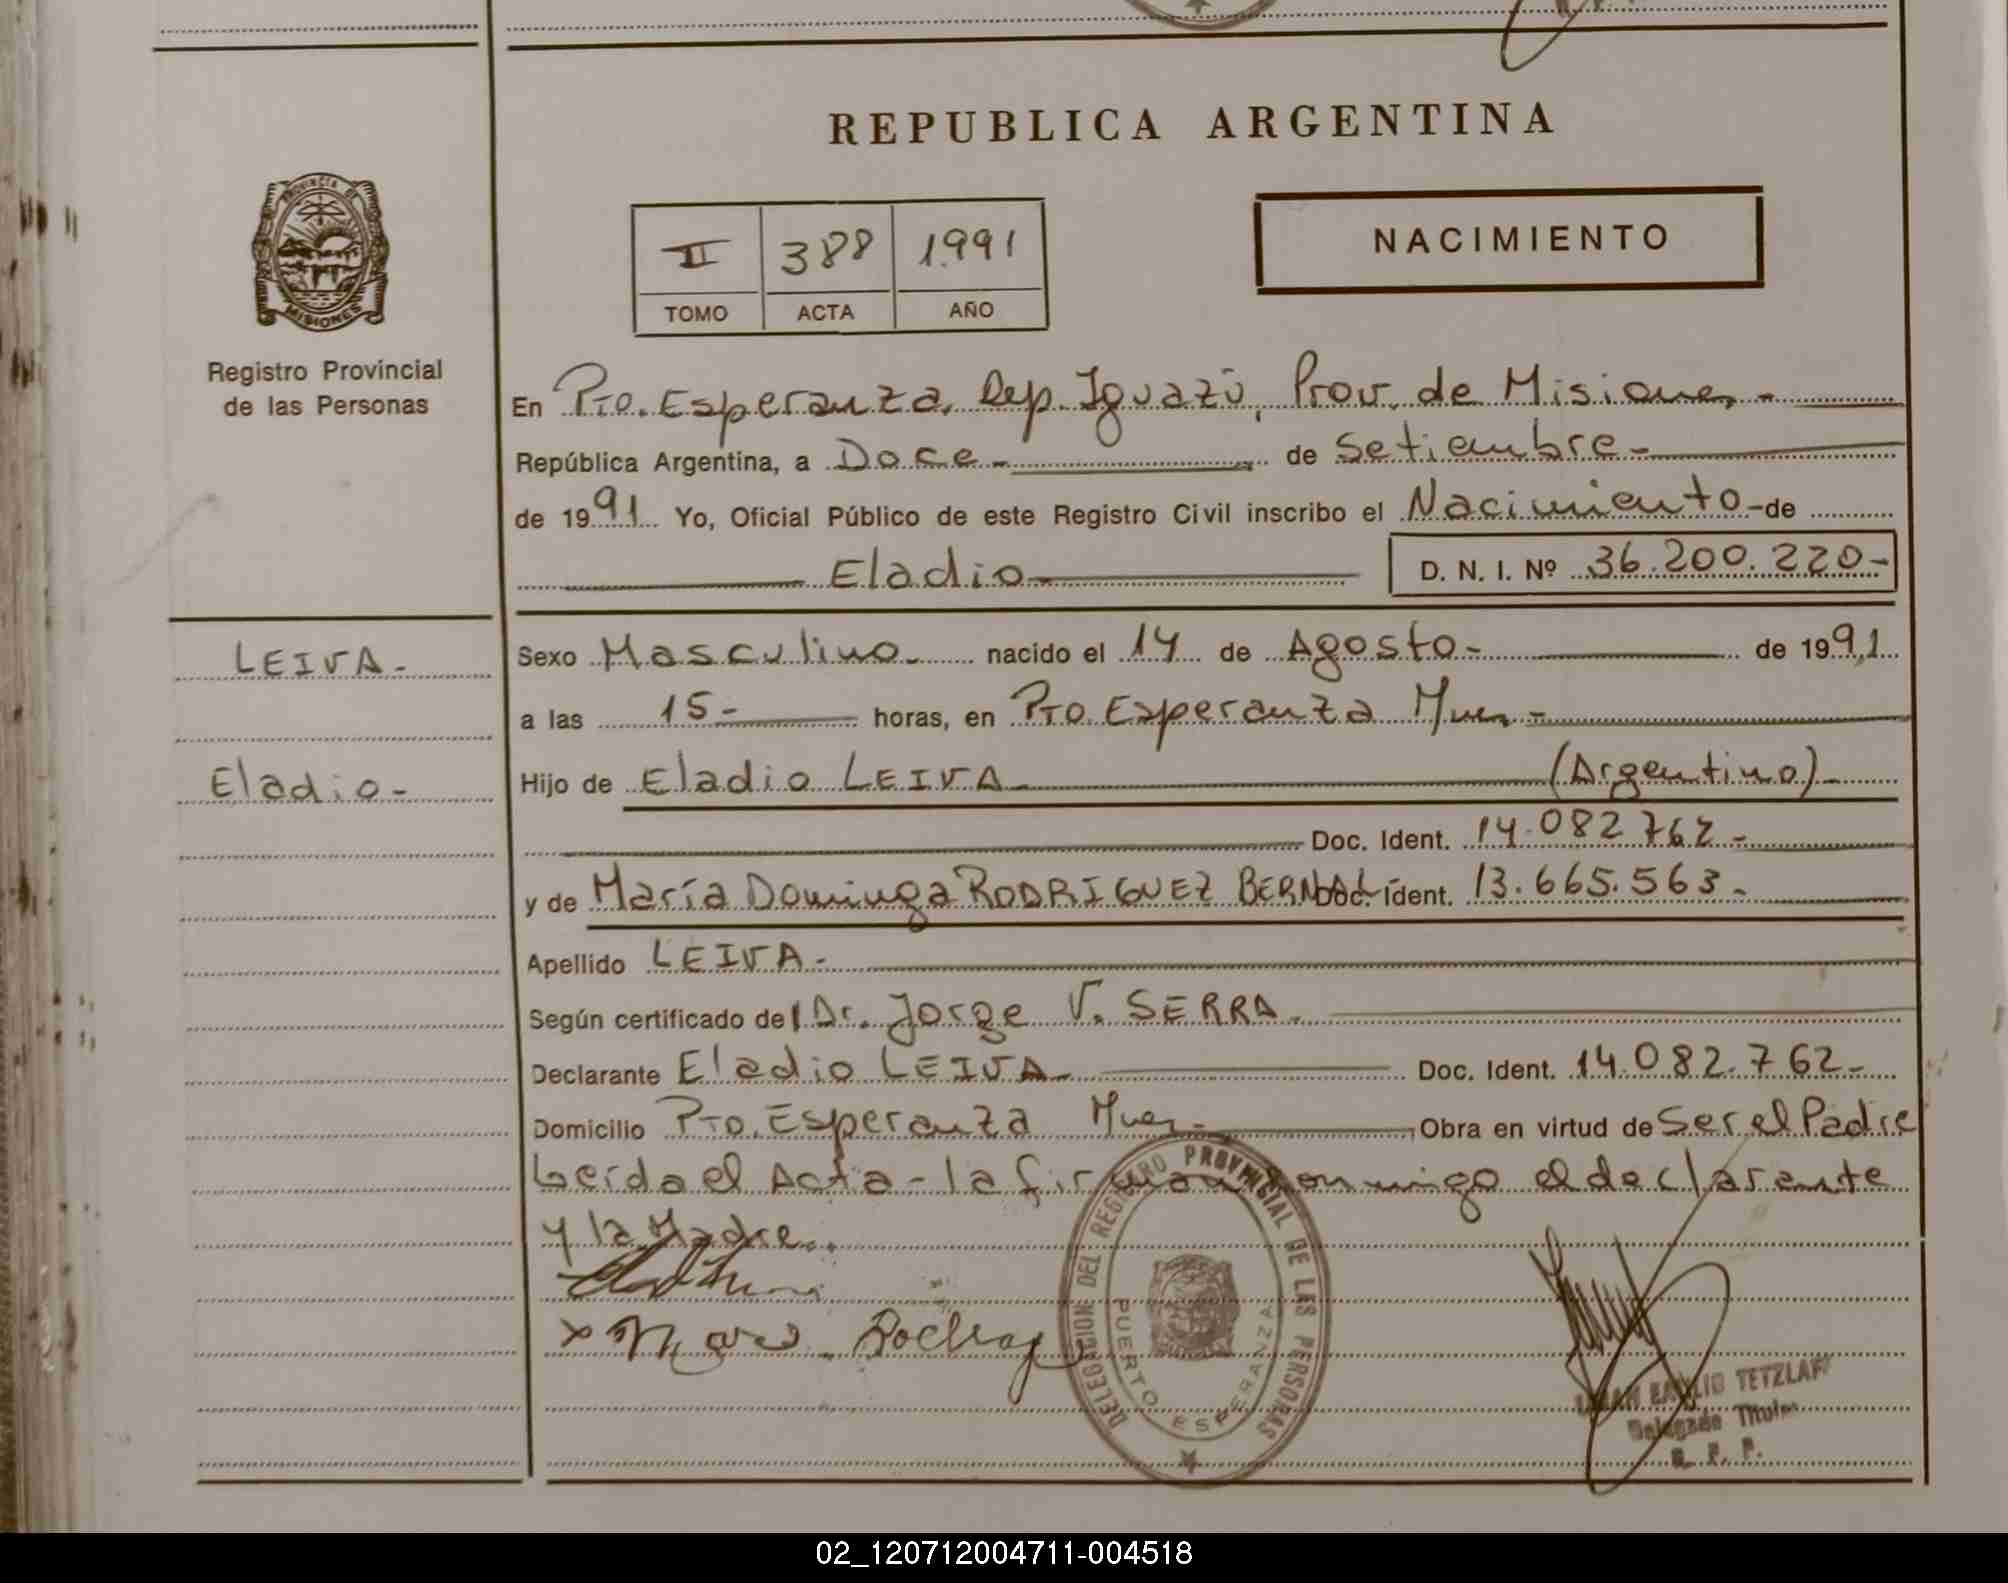 REPUBLICA ARGENTINA
PROVINCIA DE
MISIONES
Registro Provincial
de las Personas
II 388 1991
TOMO ACTA AÑO
NACIMIENTO
En Pto. Esperanza, Dep. Iguazú, Prov. de Misiones.-
República Argentina, a Doce.- de Setiembre-
de 1991 Yo, Oficial Público de este Registro Civil inscribo el Nacimiento-de
Eladio- D. N. I. Nº 36.200.220-
LEIVA-
Sexo Masculino- nacido el 14 de Agosto- de 1991
a las 15- horas, en Pto. Esperanza
Eladio-
Hijo de Eladio LEIVA (Argentino)-
Doc. Ident. 14.082.762-
y de María Dominga RODRIGUEZ BERNAL- Doc. Ident. 13.665.563-
Apellido LEIVA-
Según certificado del Dr. Jorge V. SERRA.
Declarante Eladio LEIVA- Doc. Ident. 14.082.762-
Domicilio Pto. Esperanza Obra en virtud de Ser el Padre
Leída el Acta-la firman conmigo el declarante
y la Madre..
DELEGACION DEL REGISTRO PROVINCIAL DE LAS PERSONAS
PUERTO ESPERANZA
EMILIO TETZLAFF
Delegado Titular
R. P. P.
02_120712004711-004518